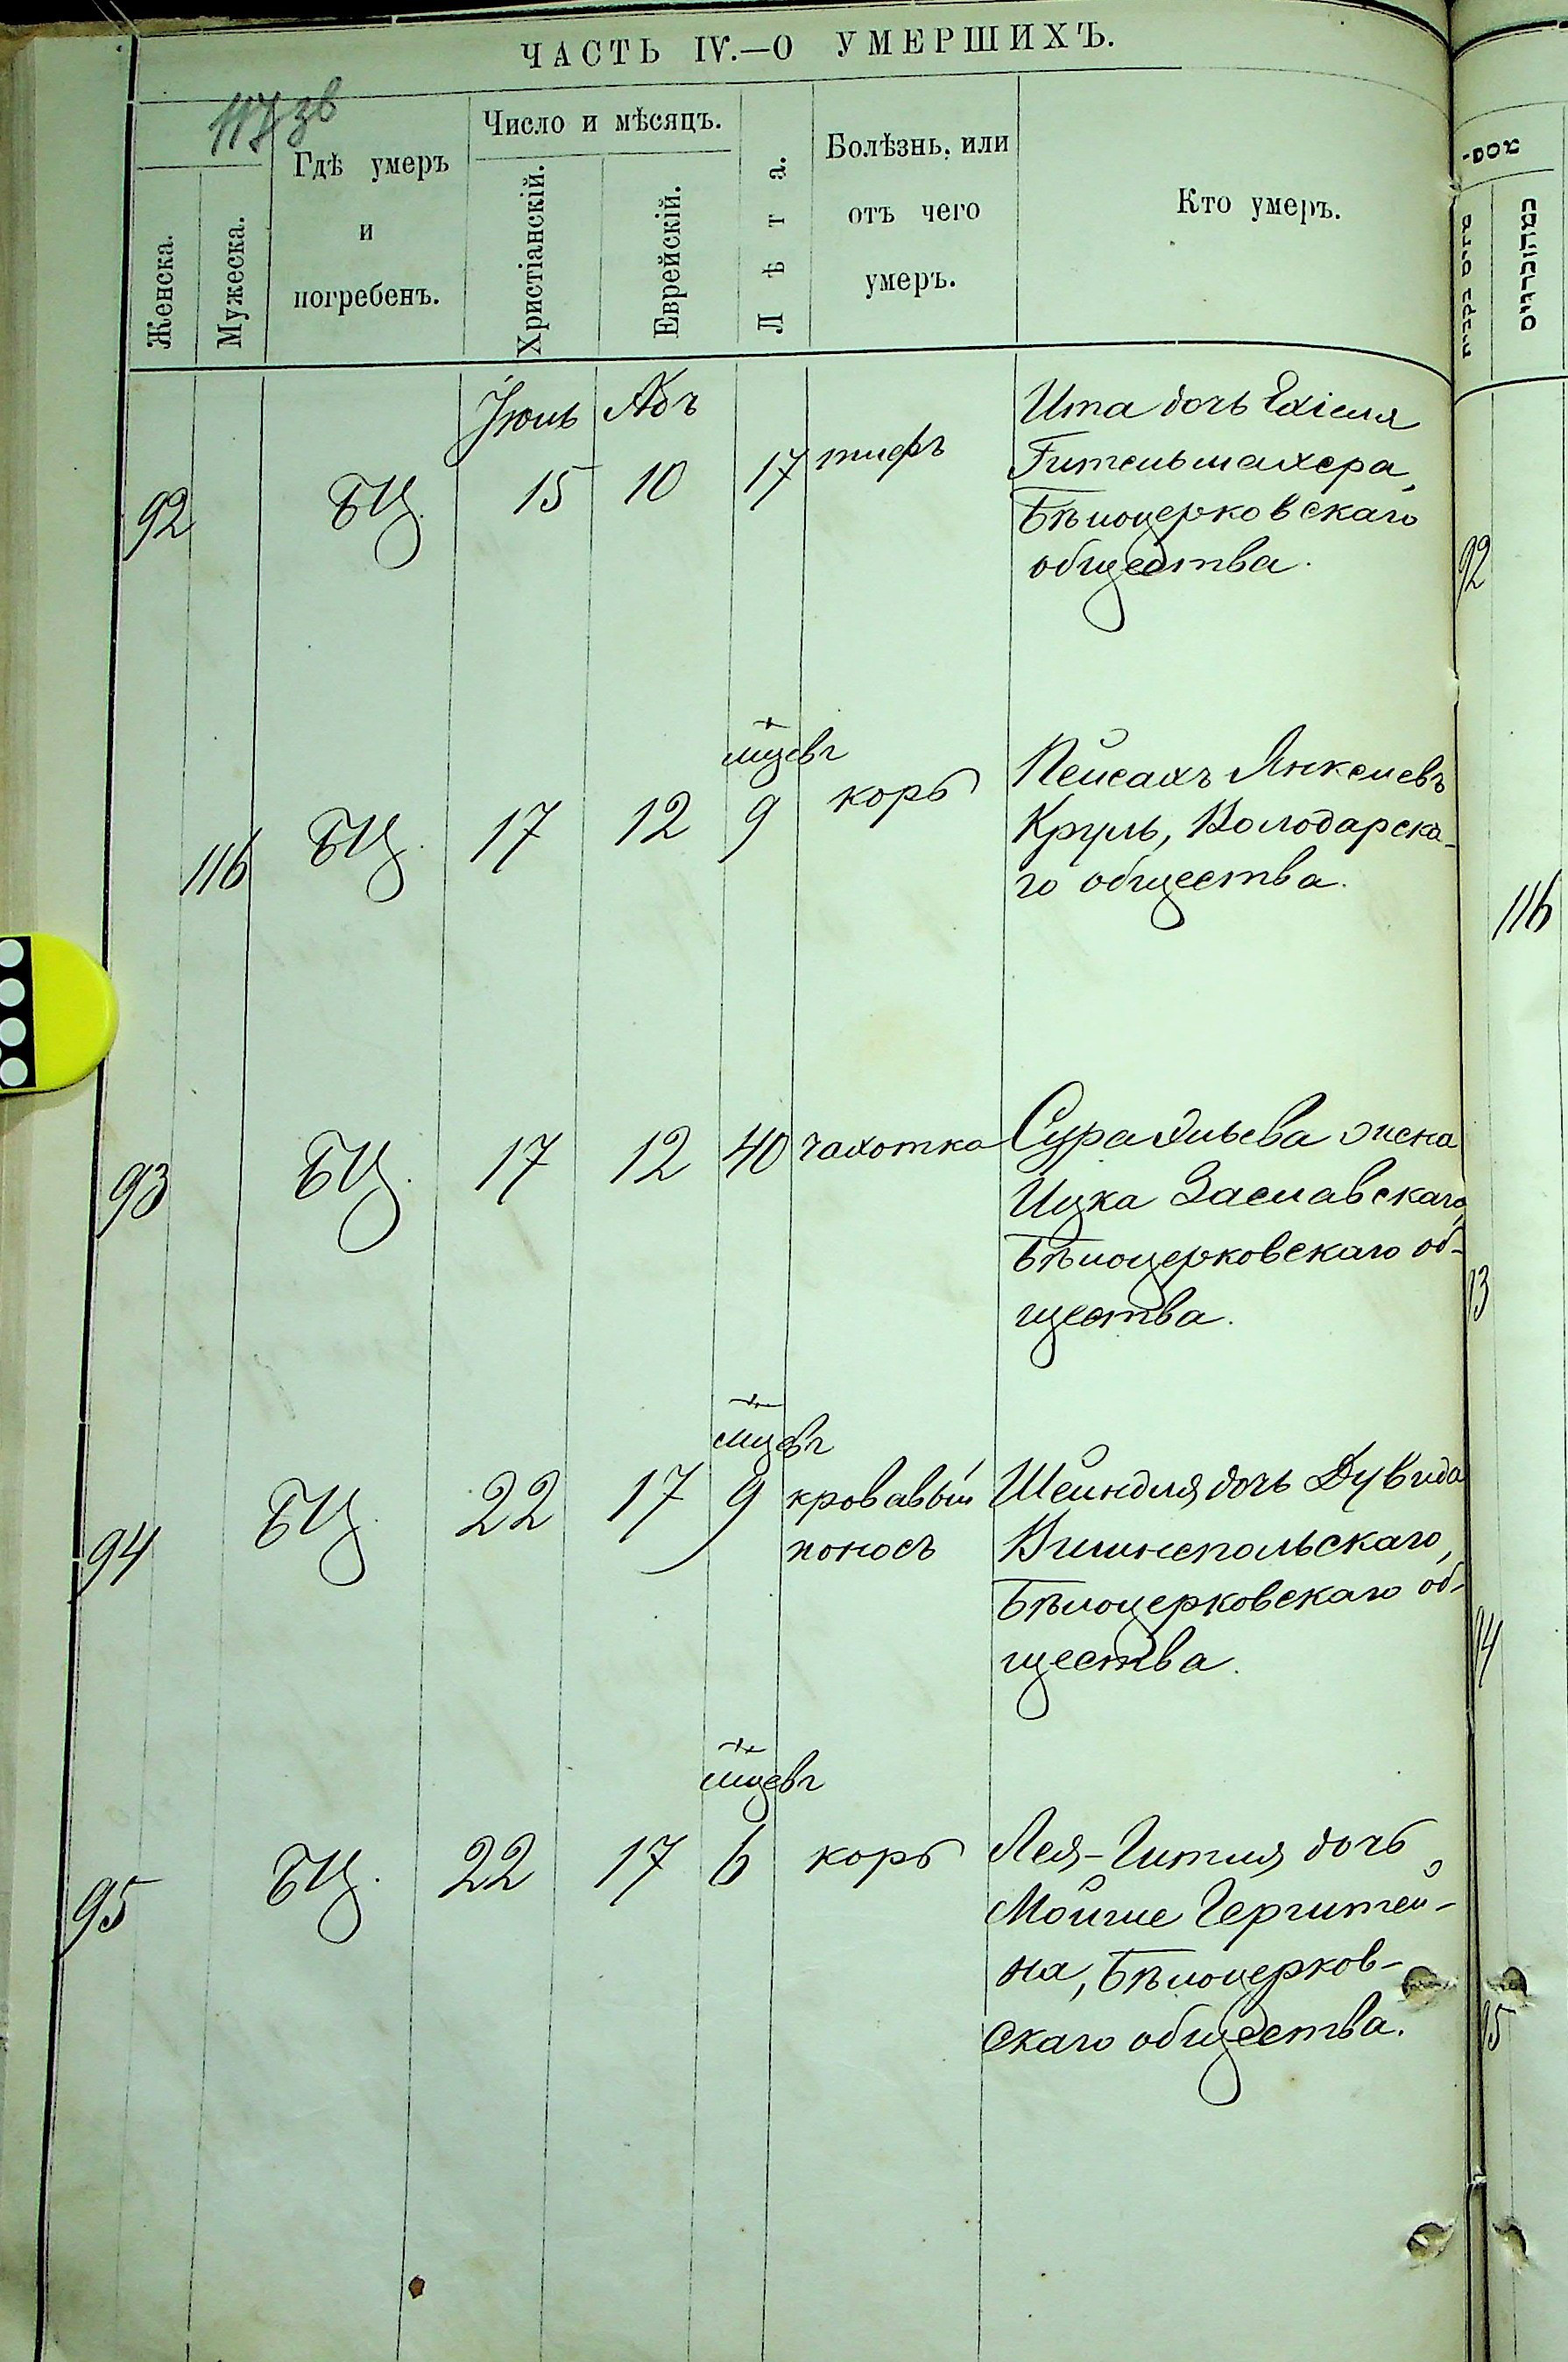 ЧАСТЬ IV.—О УМЕРШИХЪ.
117 зв
Женска.
Мужеска.
Гдѣ умеръ
и
погребенъ.
Число и мѣсяцъ.
Христіанскій.
Еврейскій.
Лѣта.
Болѣзнь, или
отъ чего
умеръ.
Кто умеръ.
Іюль Абъ
92 БЦ. 15 10 17 тифъ
Ита дочь Ехіеля
Гительмахера,
Бѣлоцерковскаго
общества.
мцевъ
116 БЦ. 17 12 9 корь
Пейсахъ Янкелевъ
Круль, Володарска-
го общества.
93 БЦ. 17 12 40 чахотка
Сура Эльева жена
Ицка Заславскаго,
Бѣлоцерковскаго об-
щества.
мцевъ
94 БЦ. 22 17 9 кровавый
поносъ
Шейндля дочь Дувида
Вишнепольскаго,
Бѣлоцерковскаго об-
щества.
мцевъ
95 БЦ. 22 17 6 корь
Лея-Гитля дочь
Мойше Герштей-
на, Бѣлоцерков-
скаго общества.
92
116
93
94
95